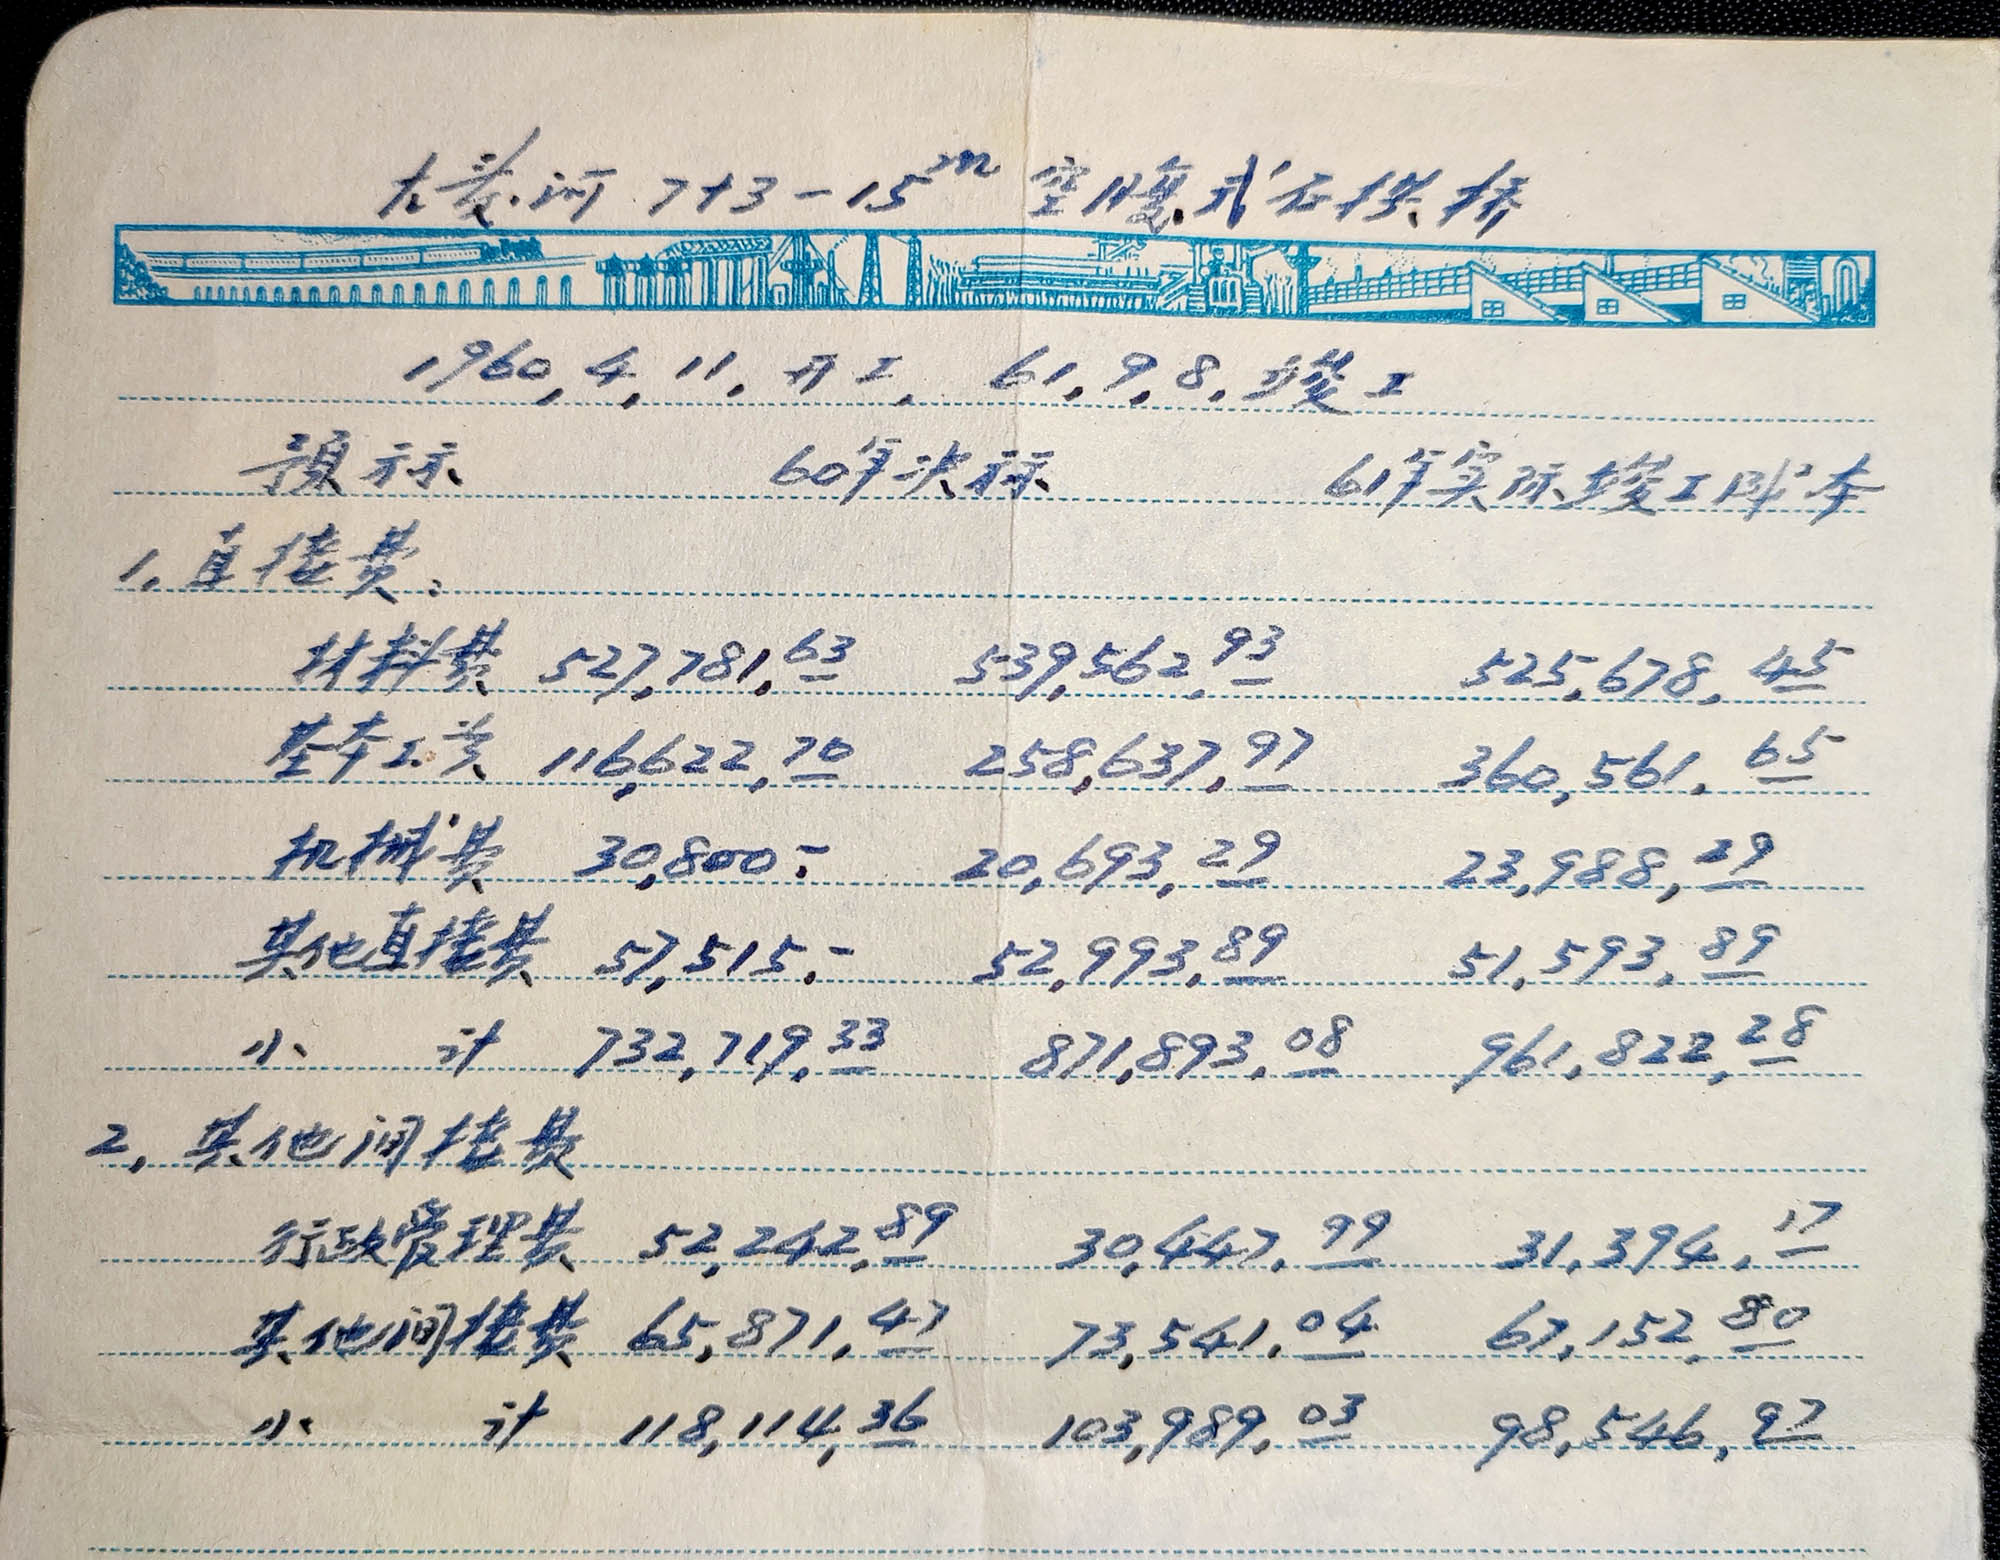 大菱河 7+3-15m 空腹式石拱桥
1960.4.11.开工. 61.9.8.竣工
预标 60年决标 61年实际竣工成本
1.直接费:
材料费 527,781.63 539,562.93 525,678.45
基本工资 116,622.70 258,637.97 360,561.65
机械费 30,800.- 20,693.29 23,988.29
其他直接费 57,515.- 52,993.89 51,593.89
小计 732,719.33 871,893.08 961,822.28
2.其他间接费
行政管理费 52,242.89 30,447.99 31,394.17
其他间接费 65,871.47 73,541.04 67,152.80
小计 118,114.36 103,989.03 98,546.97